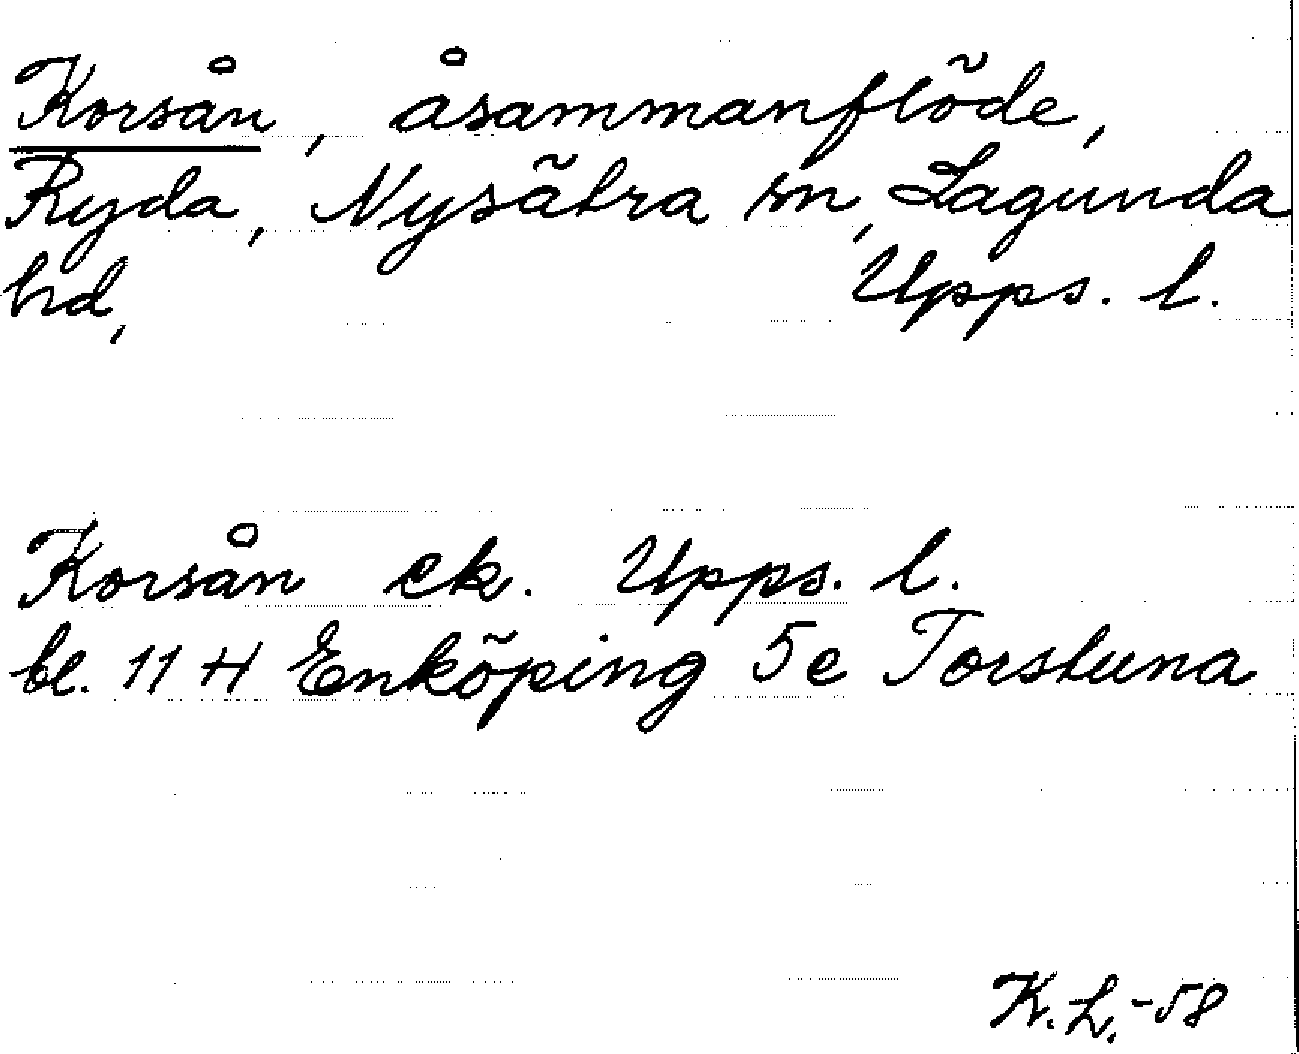 Korsån, åsammanflöde,
Ryda, Nysätra sn, Lagunda
hd, Upps. l.
Korsån ek. Upps. l.
bl. 11 H Enköping 5e Torstuna
K. L. -58